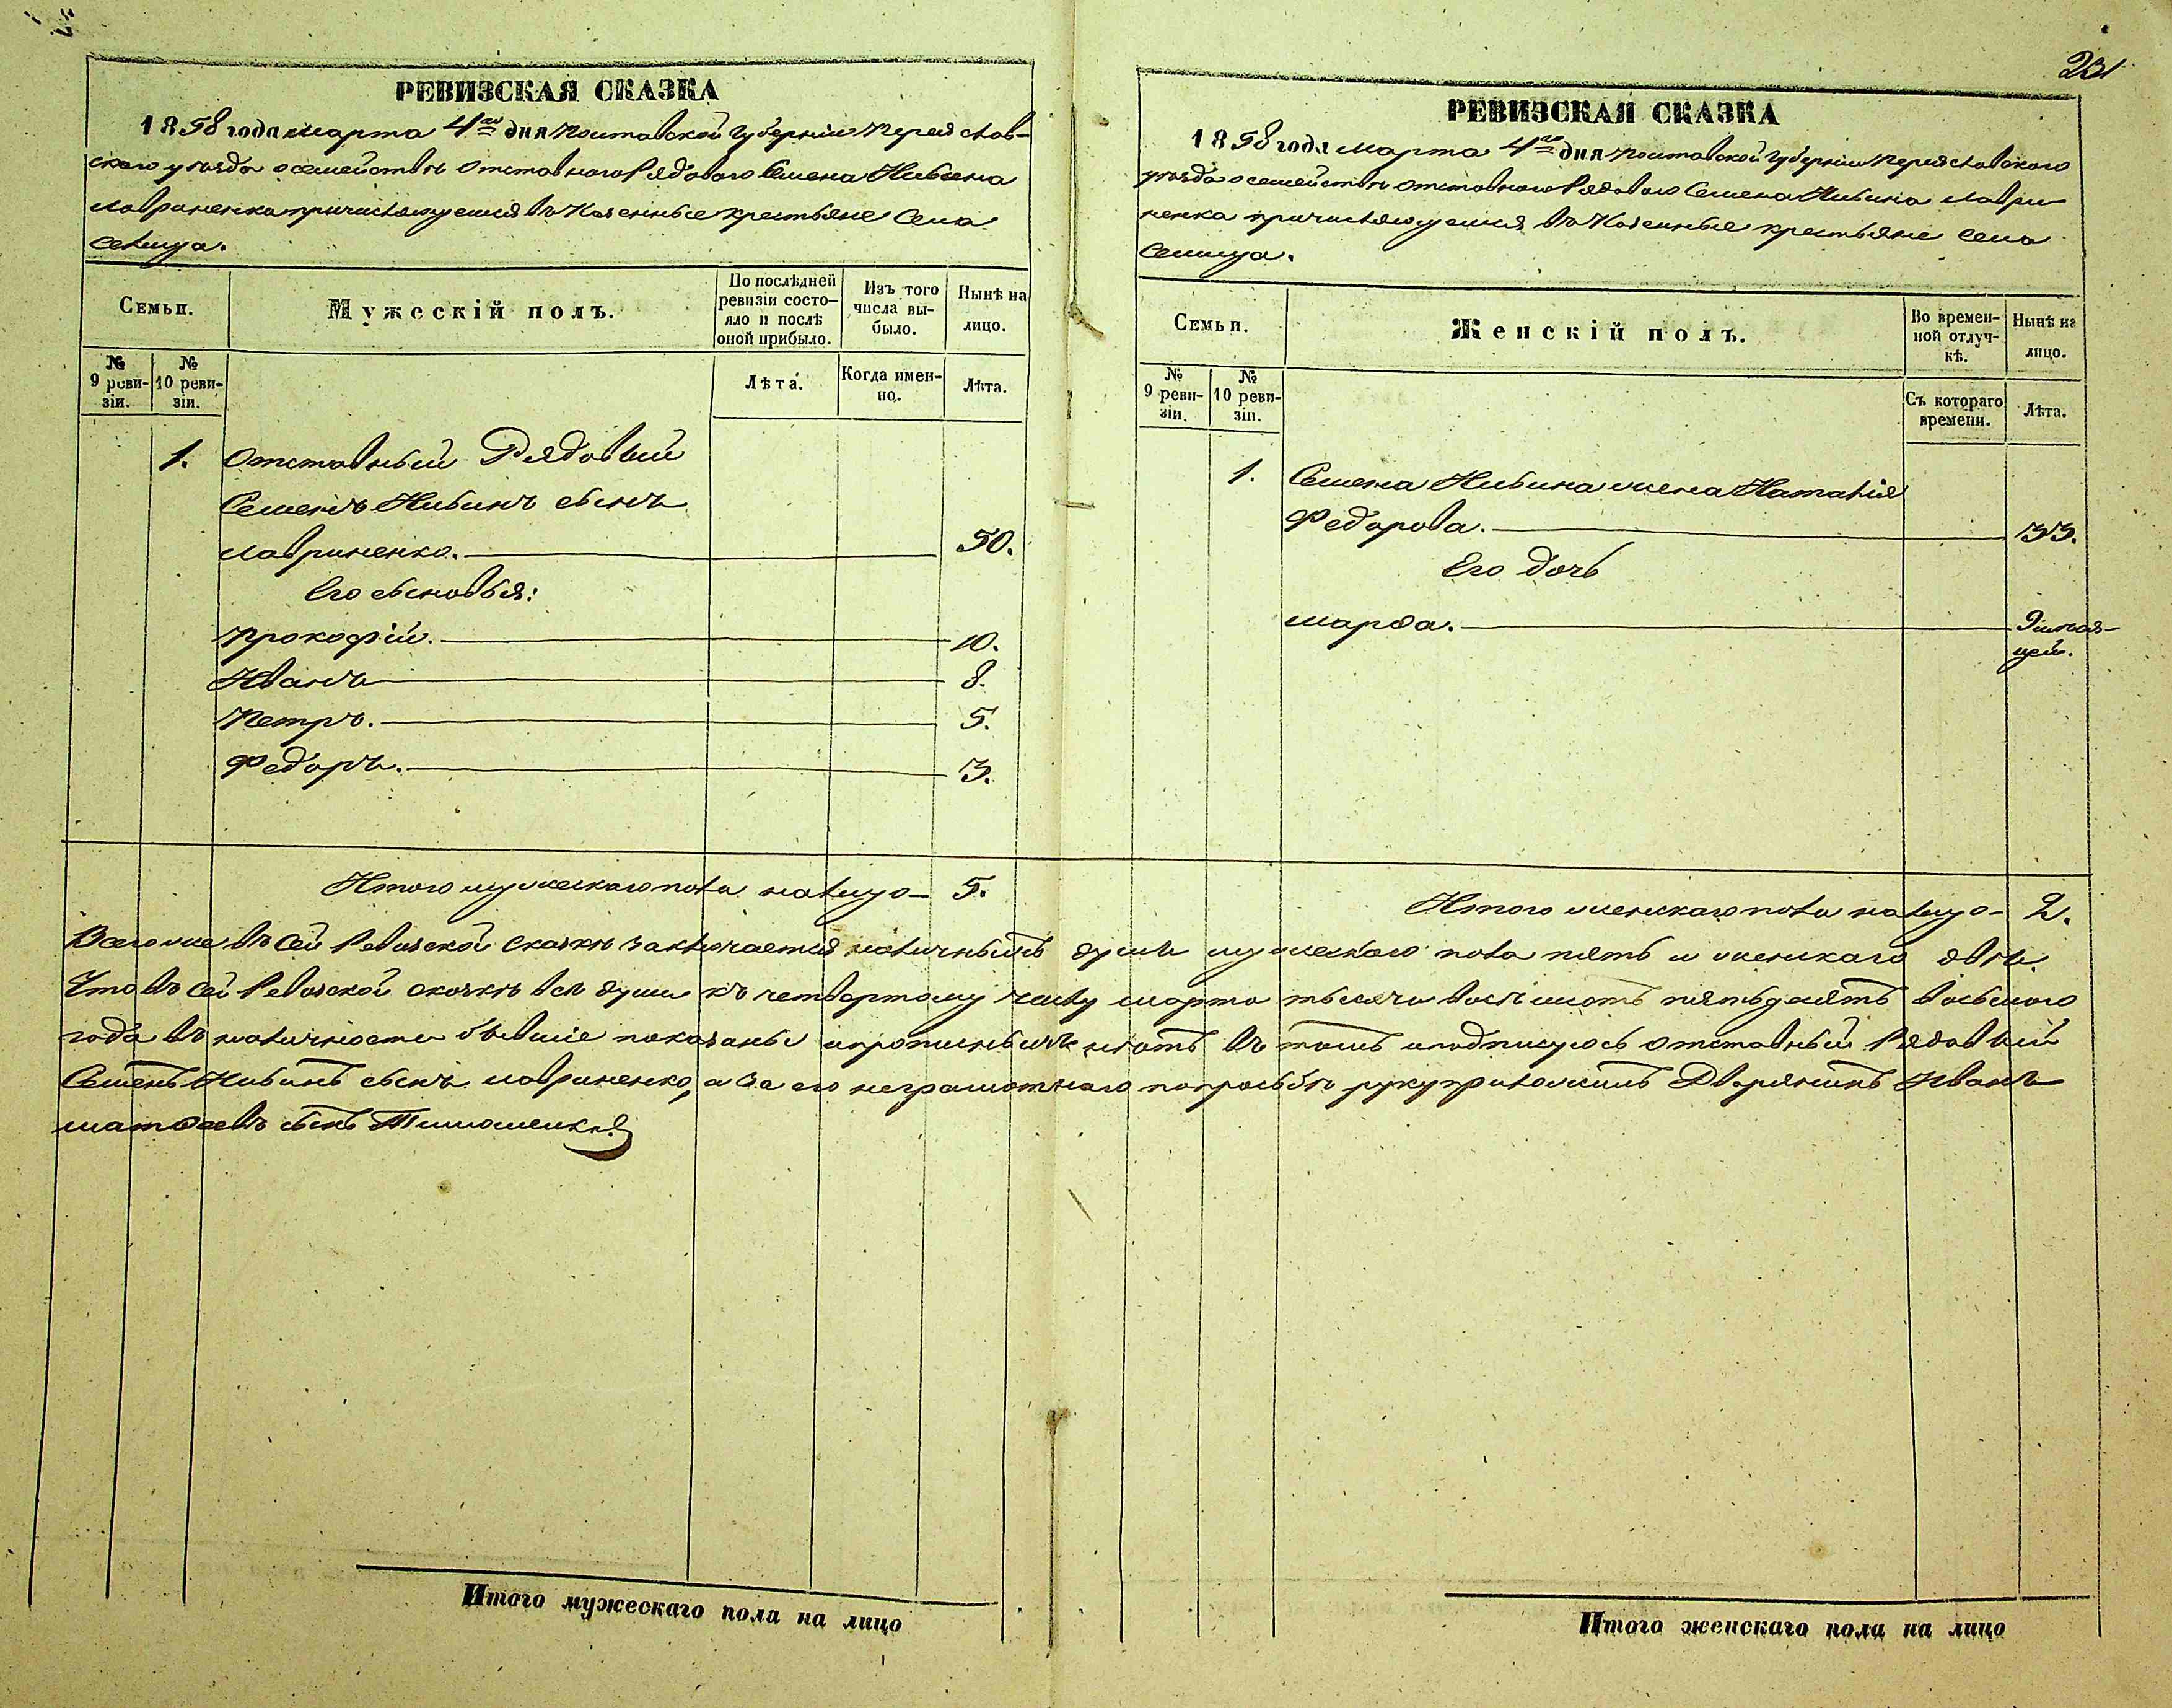 231
РЕВИЗСКАЯ СКАЗКА
1858 года марта 4го дня Полтавской Губерніи Переяслав-
скаго уѣзда о семействѣ отставнаго Рядоваго Семена
Лавриненка причисляющемся въ Казенные крестьяне Села
Селища.
Семьи.
Мужескій полъ.
По послѣдней ревизіи состо-яло и послѣ оной прибыло.
Изъ того числа вы-было.
Нынѣ на лицо.
№ 9 реви-зіи.
№ 10 реви-зіи.
Лѣта.
Когда имен-но.
Лѣта.
1. Отставный Рядовый
Семенъ сынъ
Лавриненко. 50.
Его сыновья:
Прокофій. 10.
Иванъ 8.
Петръ. 5.
Федоръ. 3.
Итого мужескаго пола налицо 5.
РЕВИЗСКАЯ СКАЗКА
1858 года марта 4го дня Полтавской Губерніи Переяславскаго
уѣзда о семействѣ отставнаго Рядоваго Семена Лаври-
ненка причисляющемся въ Казенные крестьяне Села
Селища.
Семьи.
Женскій полъ.
Во времен-ной отлуч-кѣ.
Нынѣ на лицо.
№ 9 реви-зіи.
№ 10 реви-зіи.
Съ котораго времени.
Лѣта.
1. Семена жена Наталія
Федорова. 33.
Его дочь
Марѳа. 9 мѣся-
цей.
Итого женскаго пола налицо 2.
Всего же въ сей Ревизской сказкѣ заключается наличныхъ душъ мужескаго пола пять и женскаго двѣ.
Что въ сей Ревизской сказкѣ всѣ души къ четвертому числу марта тысяча восемьсотъ пятьдесятъ восьмого
года въ наличности бывшіе показаны и прописныхъ нѣтъ въ томъ и подписуюсь отставный Рядовый
Семенъ сынъ Лавриненко, а за его неграмотнаго попросьбѣ руку приложилъ Дворянинъ Иванъ
Матѳеевъ сынъ Тимошенко
Итого мужескаго пола на лицо
Итого женскаго пола на лицо